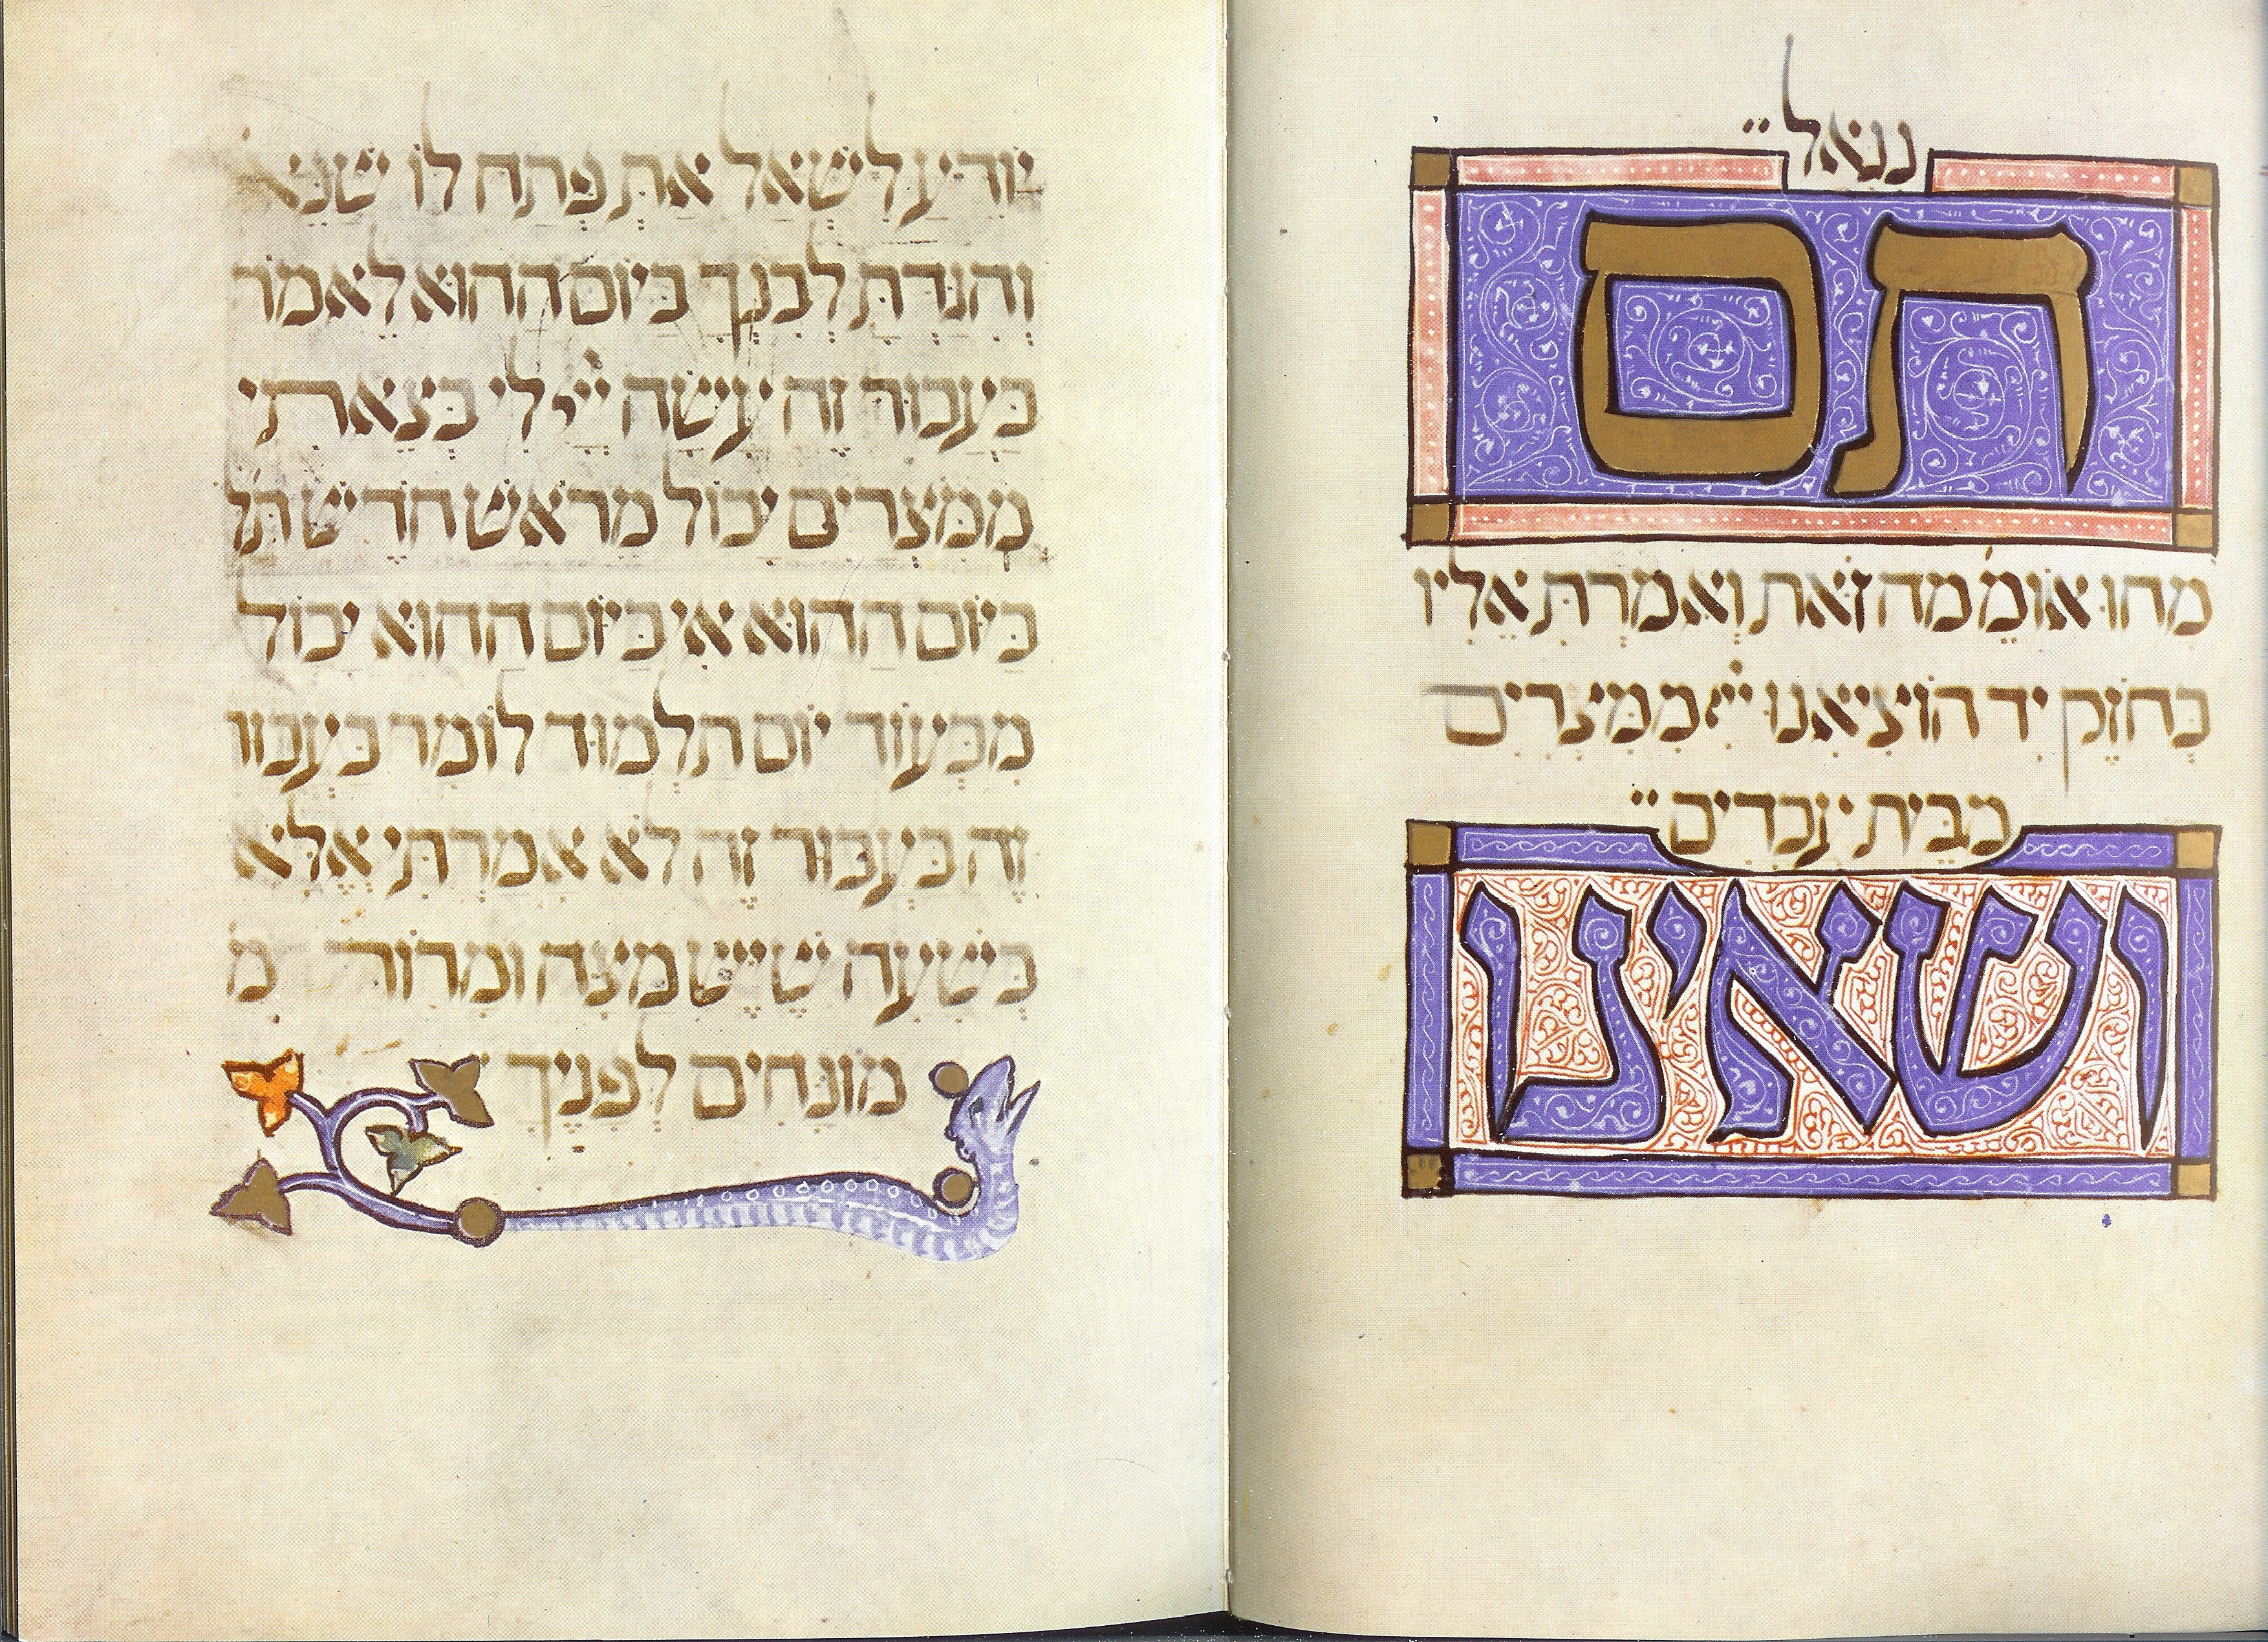 נגאל״
תם
מהו אומ׳ מה זאת ואמרת אליו
בחזק יד הוציאנו ייי ממצרים
מבית עבדים״
ושאינו
יודיע לשאל את פתח לו שנא׳
והגדת לבנך ביום ההוא לאמר
בעבור זה עשה ייי לי בצאתי
ממצרים יכול מראש חדש תל
ביום ההוא אי ביום ההוא יכול
מבעוד יום תלמוד לומר בעבור
זה בעבור זה לא אמרתי אלא
בשעה שייש מצה ומרור מ
מונחים לפניך